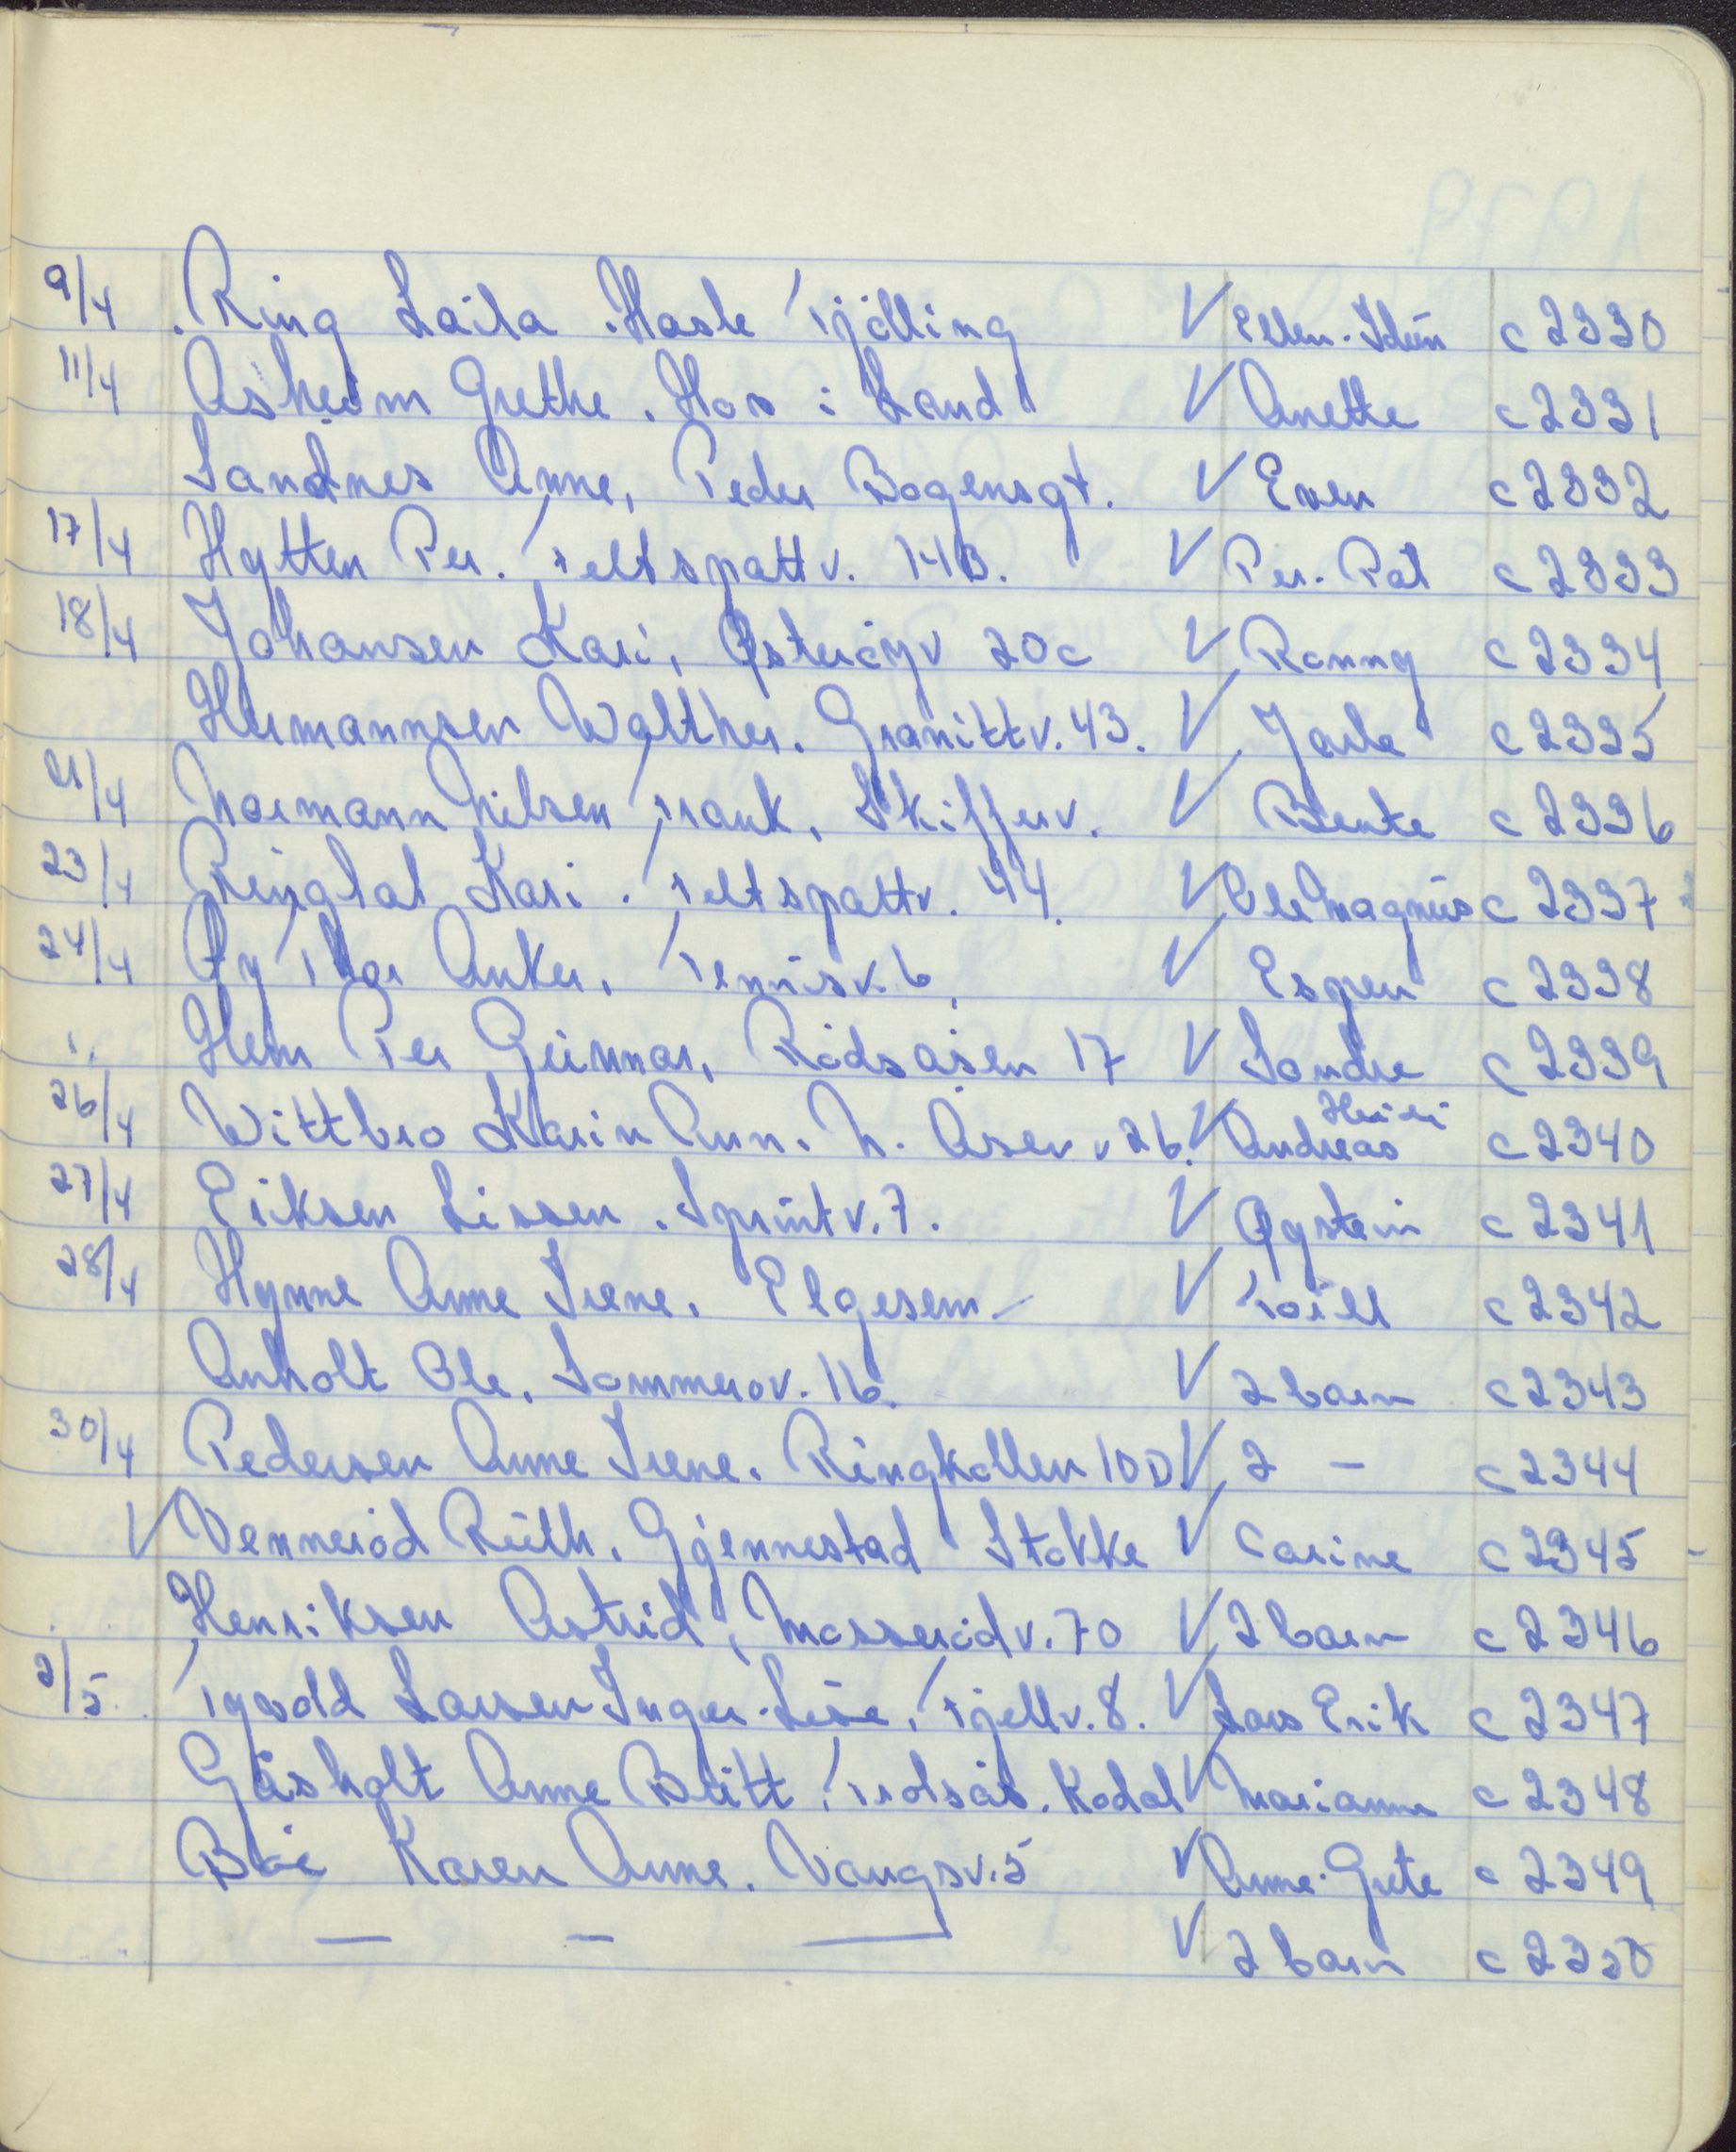 9/4 Ring Laila. Hasle Tjölling V Ellen-Iden c 2330
11/4 Åsheim Grethe. Hos: Sand V Anette c 2331
Sandnes Anne, Peder Bogensgt. V Even c 2332
17/4 Hytten Per. Feltspattv. 14B. V Per-Pål c 2333
18/4 Johansen Kari, Østeröyv 20c V Ronny c 2334
Hermannsen Walther. Granittv. 43. V Jarle c 2335
21/4 Narmann Nilsen Frank, Skifferv. V Bente c 2336
23/4 Ringdal Kari. Feltspattv. 44. V Ole Magnus c 2337
24/4 Øy Thor Anker, Tennisv. 6, V Espen c 2338
" Hem Per Gunnar, Rödsåsen 17 V Sondre c 2339
26/4 Wittbro Karin Ann. N. Åsen v 26. V Andreas Heidi c 2340
27/4 Eriksen Lissen. Sprintv. 7. V Øystein c 2341
28/4 Hynne Anne Irene. Elgesem V Toill c 2342
Anholt Ole. Sommerov. 16. V 2 barn c 2343
30/4 Pedersen Anne Irene. Ringkollen 10D V 2 - c 2344
V Venneröd Ruth. Gjennestad Stokke V Carine c 2345 -
Henriksen Astrid, Mosserödv. 70 V 2 barn c 2346
2/5. Tyvold Larsen Inger-Lise, Fjellv. 8. V Lars Erik c 2347
Gåsholt Anne Britt, Trolsås. Kodal V Marianne c 2348
Böe Karen Anne. Vangsv. 5 V Anne-Grete c 2349
— — — V 2 barn c 2350